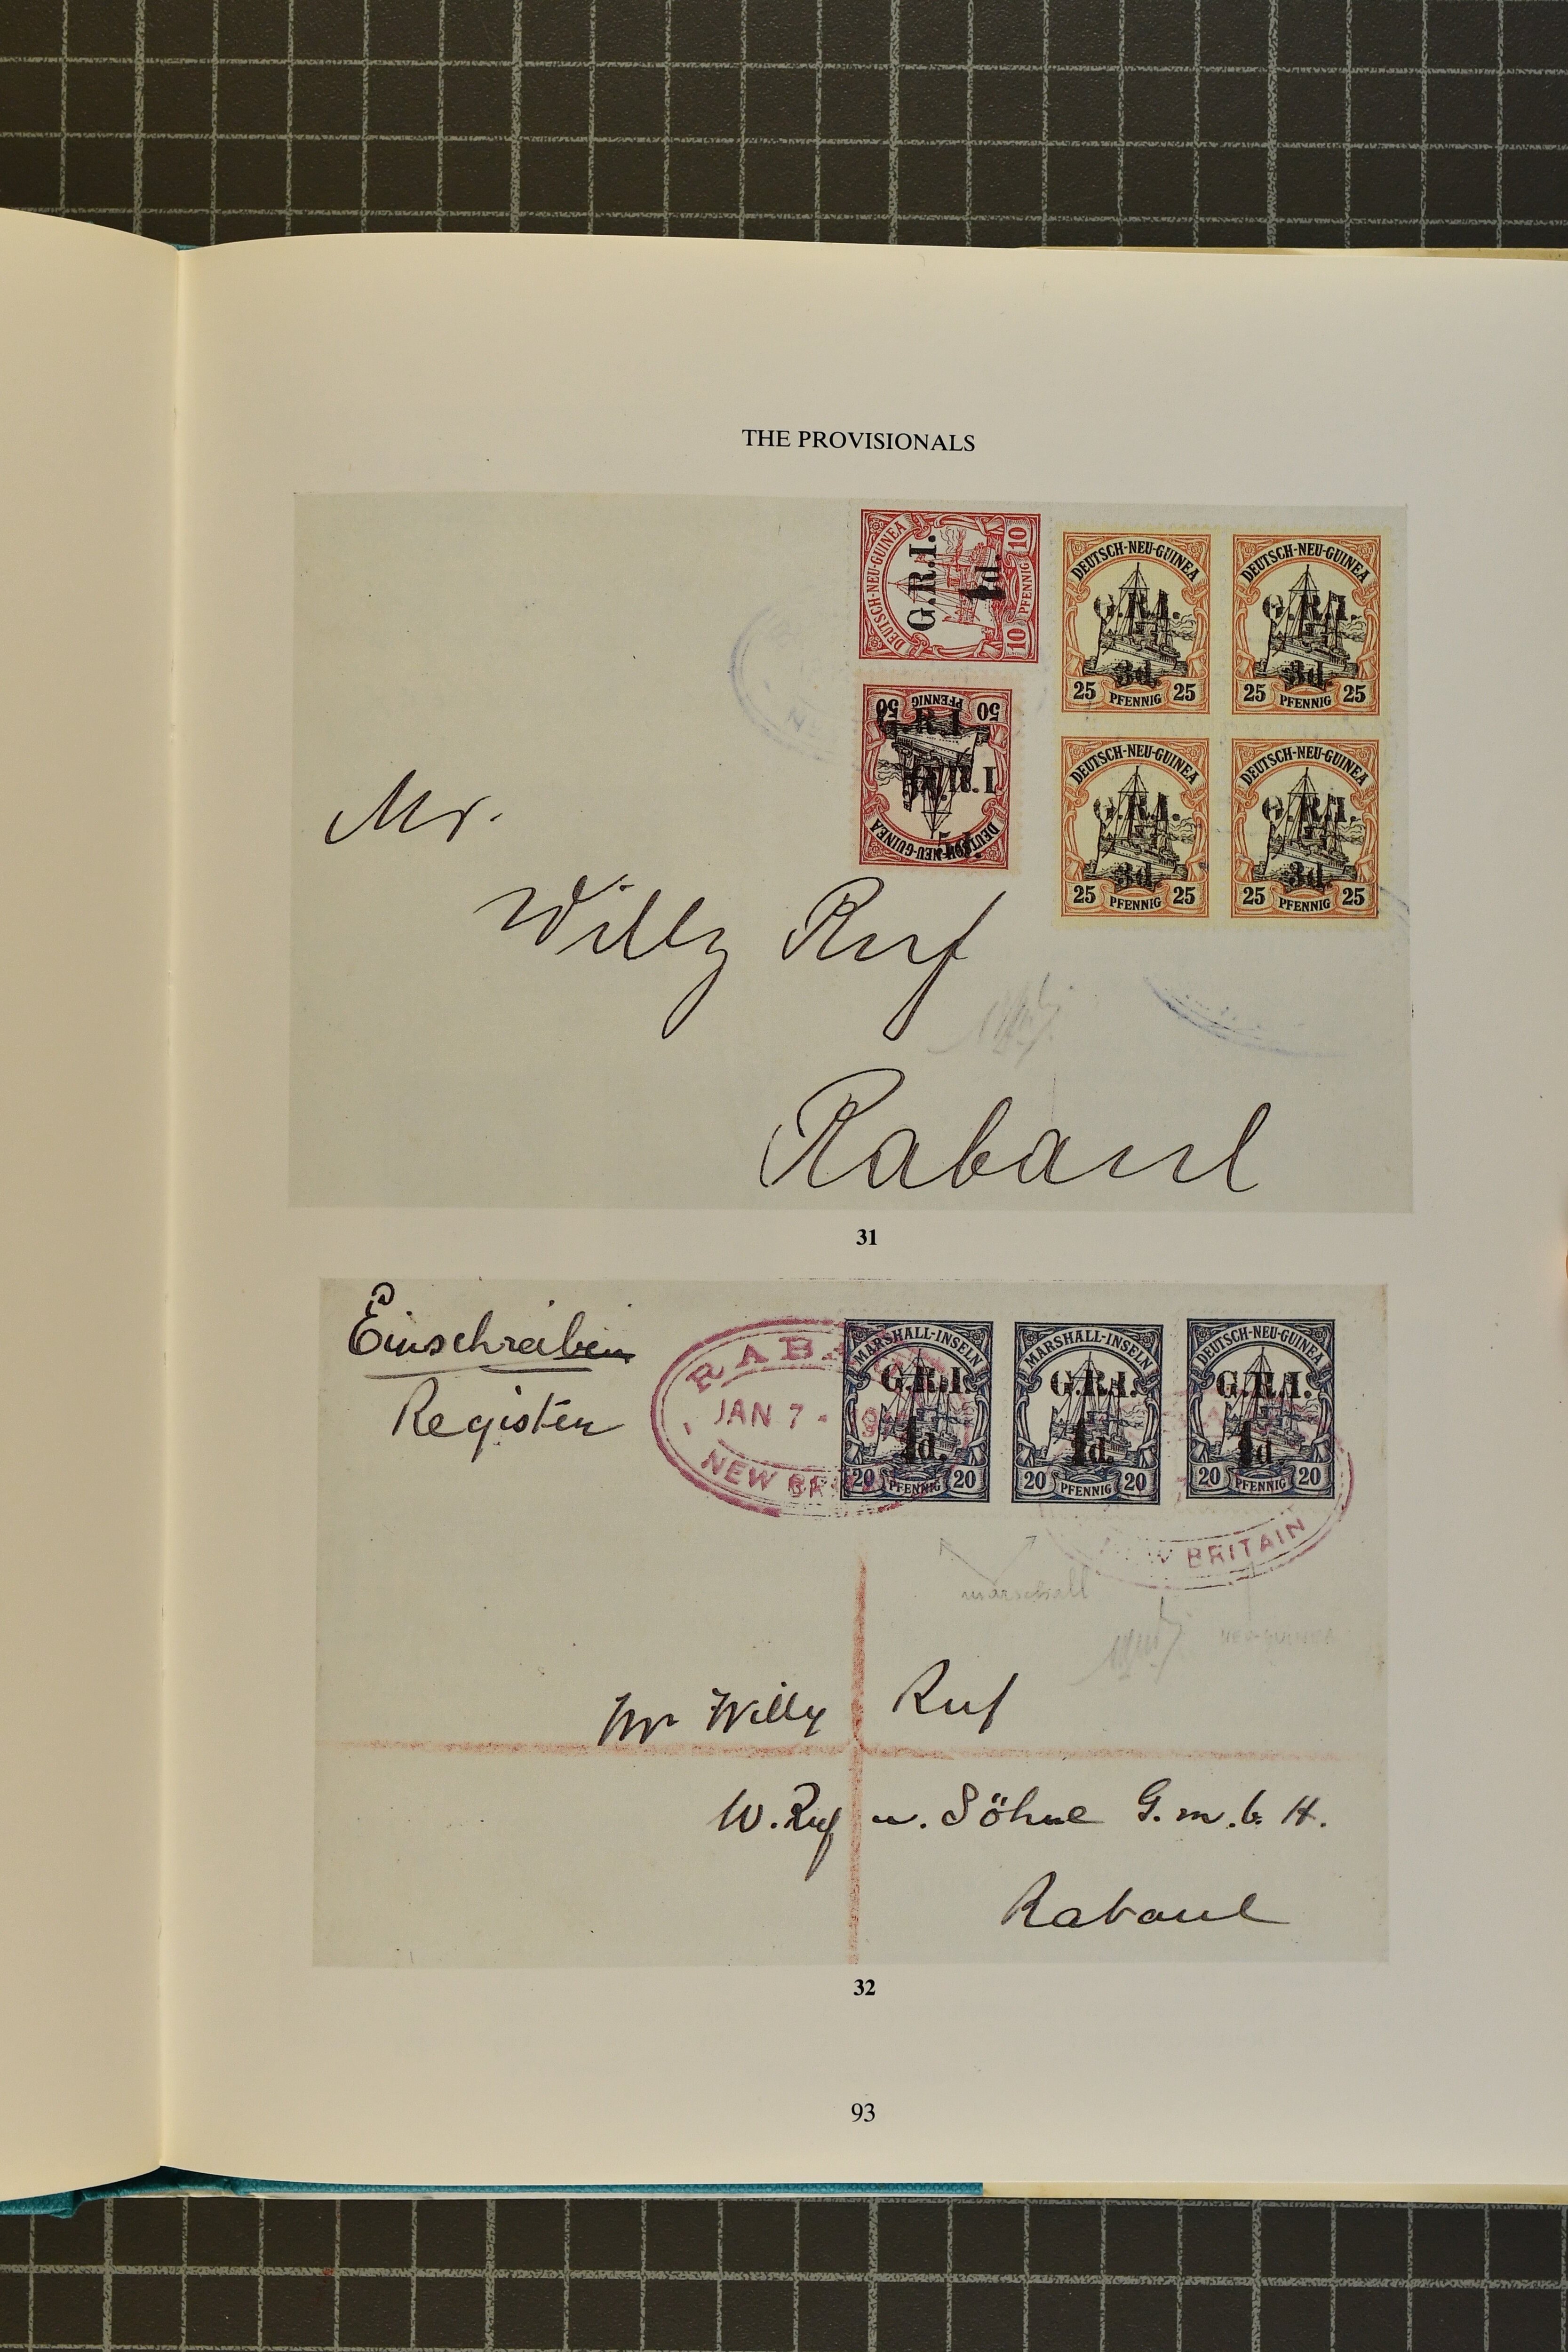 THE PROVISIONALS
DEUTSCH-NEU-GUINEA
G.R.I.
1d.
10 PFENNIG 10
DEUTSCH-NEU-GUINEA
G.R.I.
3d.
25 PFENNIG 25
DEUTSCH-NEU-GUINEA
G.R.I.
3d.
25 PFENNIG 25
50 PFENNIG 50
G.R.I.
DEUTSCH-NEU-GUINEA
DEUTSCH-NEU-GUINEA
G.R.I.
3d.
25 PFENNIG 25
DEUTSCH-NEU-GUINEA
G.R.I.
3d.
25 PFENNIG 25
Mr.
Willy Ruf
Rabaul
31
Einschreiben
Register
JAN 7
NEW
MARSHALL-INSELN
G.R.I.
1d.
20 PFENNIG 20
MARSHALL-INSELN
G.R.I.
1d.
20 PFENNIG 20
DEUTSCH-NEU-GUINEA
G.R.I.
1d.
20 PFENNIG 20
BRITAIN
marschall
NEU-GUINEA
Mr Willy Ruf
W. Ruf u. Söhne G.m.b.H.
Rabaul
32
93